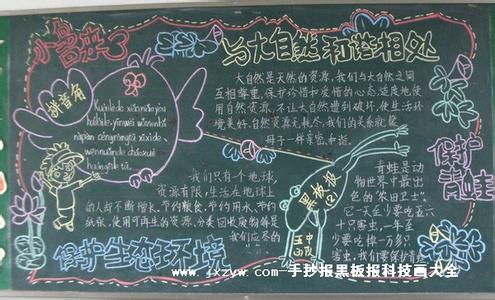 小鸟来了
与大自然和谐相处
拼音角
大自然是天然的资源,我们与大自然之间
互相尊重,保护珍惜和爱惜的心态适度地使
用自然资源,不让大自然遭到破坏,使生活环
境美好,自然资源无耗尽,我们的关系就能
母子一样亲密、和谐。
我们只有个地球,
资源有限,生活在地球上
的人却不断增长,节约粮食,节约用水,节约
纸张,使用可再生的资源,分类回收废物等是
我们应尽的
保护生态环境
黑板报
(2)
五中
保护
青蛙
青蛙是动
物世界中最出
色的“农田卫士”。
它一天至少要吃六
十只害虫,一年至
少要吃掉一万多只
害虫,我们要保护青蛙
www.jxzyw.com 手抄报黑板报科技画大全